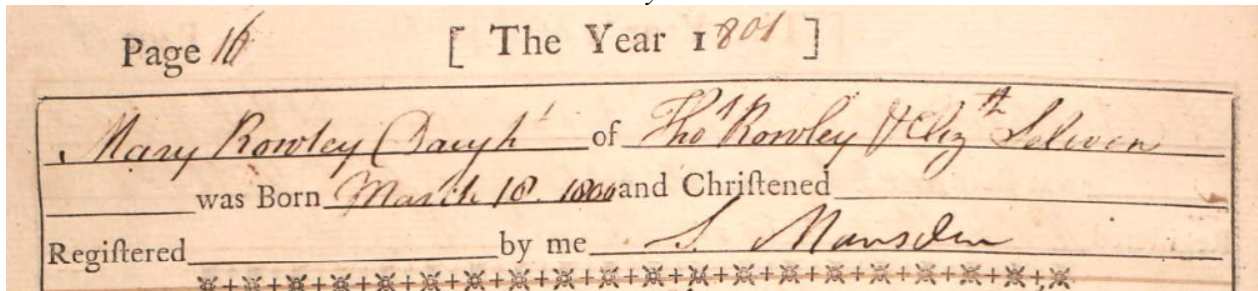 Page 16 [ The Year 1801 ]
Mary Rowley Daugh^t of Tho^s Rowley & Eliz^th Selwen
was Born March 18. 1800 and Chriſtened
Regiſtered by me S. Marsden